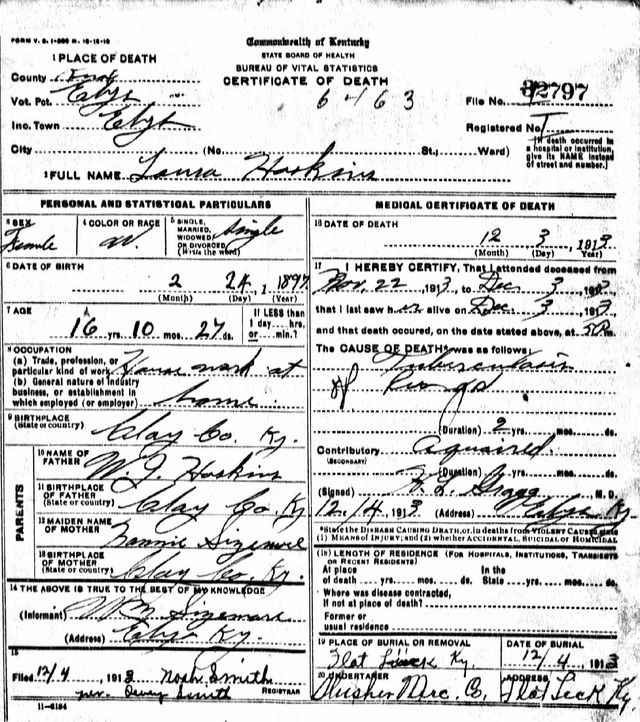 FORM V. S. 1-200 M. 10-15-10
Commonwealth of Kentucky
STATE BOARD OF HEALTH
BUREAU OF VITAL STATISTICS
CERTIFICATE OF DEATH
1 PLACE OF DEATH
County
Vot. Pct.
Inc. Town
6463
32797
File No.
Registered No.
(If death occurred in a hospital or institution, give its NAME instead of street and number.)
City (No. St.; Ward)
2 FULL NAME Laura Hoskins
PERSONAL AND STATISTICAL PARTICULARS
3 SEX Female
4 COLOR OR RACE W.
5 SINGLE, MARRIED, WIDOWED OR DIVORCED (Write the word) Single
6 DATE OF BIRTH
2 24, 1897
(Month) (Day) (Year)
7 AGE
16 yrs. 10 mos. 27 ds.
If LESS than 1 day....hrs. or.....min.?
8 OCCUPATION
(a) Trade, profession, or particular kind of work House work at
(b) General nature of industry business, or establishment in which employed (or employer) home
9 BIRTHPLACE (State or country) Clay Co. Ky.
PARENTS
10 NAME OF FATHER W. J. Hoskins
11 BIRTHPLACE OF FATHER (State or country) Clay Co. Ky
12 MAIDEN NAME OF MOTHER
13 BIRTHPLACE OF MOTHER (State or country) Clay Co. Ky.
14 THE ABOVE IS TRUE TO THE BEST OF MY KNOWLEDGE
(Informant) Wm Sizemore
(Address) Ky.
15
Filed 12/4, 1913 Noah Smith
per. Dewey Smith REGISTRAR
11-6184
MEDICAL CERTIFICATE OF DEATH
16 DATE OF DEATH
12 3, 1913
(Month) (Day) (Year)
17 I HEREBY CERTIFY, That I attended deceased from
Nov. 22 1913, to Dec. 3 1913
that I last saw her alive on Dec 3 1913
and that death occured, on the date stated above, at m.
The CAUSE OF DEATH* was as follows:
Tuberculosis
of Lungs
(Duration) 2 yrs. mos. ds.
Contributory aquaired.
(SECONDARY)
(Duration) yrs. mos. ds.
(Signed) M. D.
12/4 1913 (Address) Ky.
*State the DISEASE CAUSING DEATH, or, in deaths from VIOLENT CAUSES, state (1) MEANS OF INJURY; and (2) whether ACCIDENTAL, SUICIDAL OF HOMICIDAL
(18) LENGTH OF RESIDENCE (FOR HOSPITALS, INSTITUTIONS, TRANSIENTS OR RECENT RESIDENTS)
At place of death yrs. mos. ds. In the State yrs. mos. ds.
Where was disease contracted, If not at place of death?
Former or usual residence
19 PLACE OF BURIAL OR REMOVAL Flat Lick Ky.
DATE OF BURIAL 12/4, 1913
20 UNDERTAKER Merc. Co.
ADDRESS Flat Lick Ky.